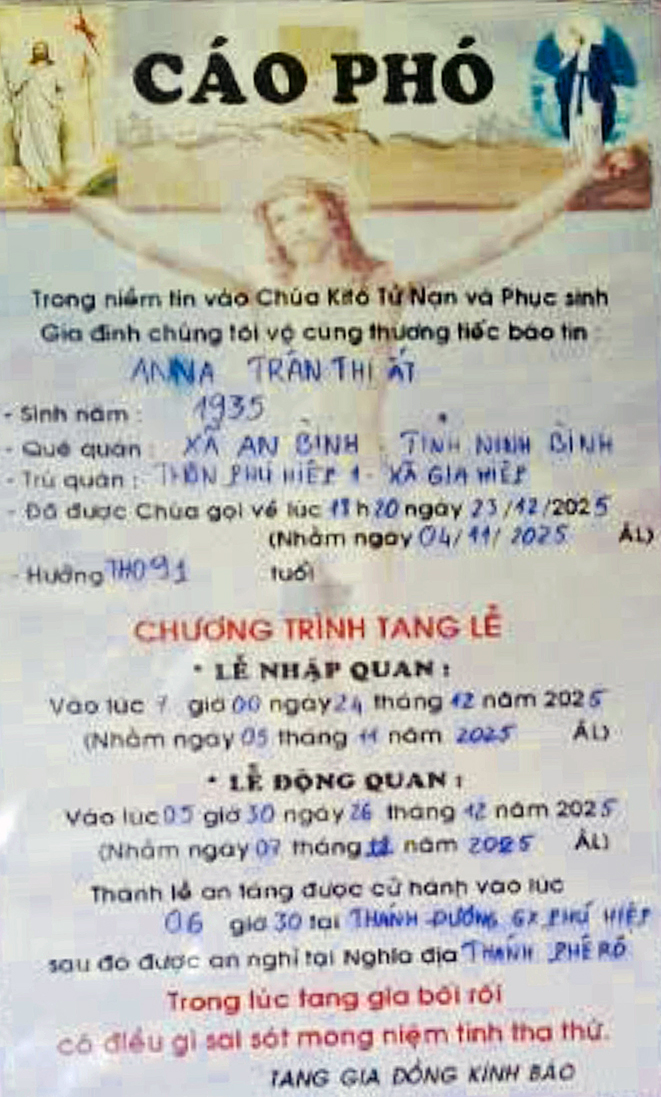 CÁO PHÓ
Trong niềm tin vào Chúa Kitô Tử Nạn và Phục sinh
Gia đình chúng tôi vô cùng thương tiếc báo tin :
ANNA TRẦN THỊ ẤT
- Sinh năm : 1935
- Quê quán : XÃ AN BÌNH - TỈNH NINH BÌNH
- Trú quán : THÔN PHÚ HIỆP 1 - XÃ GIA HIỆP
- Đã được Chúa gọi về lúc h20 ngày 23/12/2025
(Nhằm ngày 04/11/2025 ÂL)
- Hưởng THỌ 91 tuổi
CHƯƠNG TRÌNH TANG LỄ
* LỄ NHẬP QUAN :
Vào lúc 7 giờ 00 ngày 24 tháng 12 năm 2025
(Nhằm ngày 05 tháng 11 năm 2025 ÂL)
* LỄ ĐỘNG QUAN :
Vào lúc 05 giờ 30 ngày 26 tháng 12 năm 2025
(Nhằm ngày 07 tháng 11 năm 2025 ÂL)
Thánh lễ an táng được cử hành vào lúc
06 giờ 30 tại THÁNH ĐƯỜNG GX PHÚ HIỆP
sau đó được an nghỉ tại Nghĩa địa THÁNH PHÊRÔ
Trong lúc tang gia bối rối
có điều gì sai sót mong niệm tình tha thứ.
TANG GIA ĐỒNG KÍNH BÁO